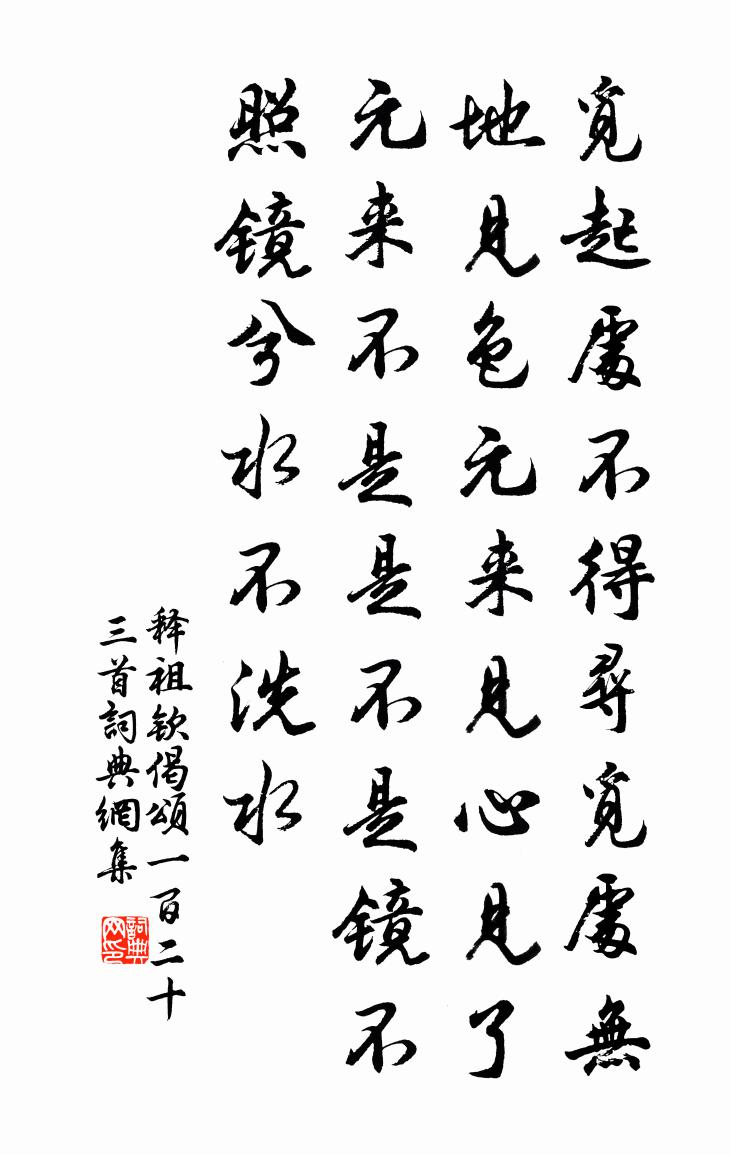 覓起處不得尋覓處無
地見色元来見心見了
元来不是是不是镜不
照镜兮水不洗水
释祖钦偈頌一百二十
三首詞典網集
詞典
网印